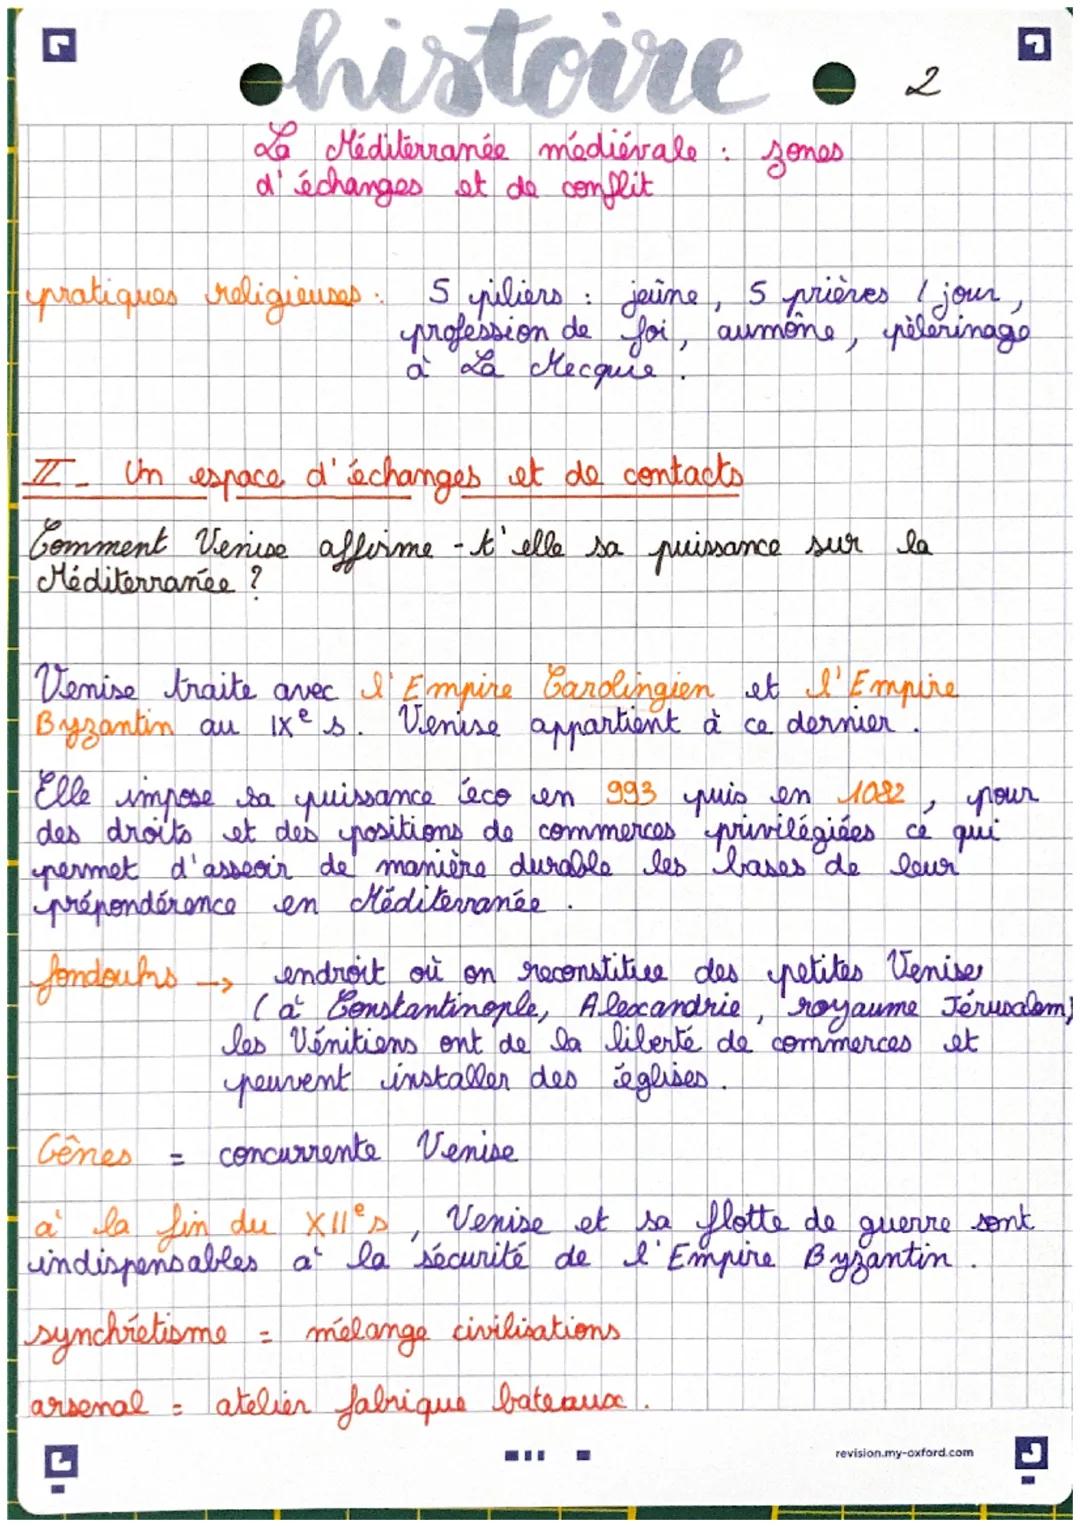 histoire 2
La Méditerranée médiévale : zones
d'échanges et de conflit
pratiques religieuses : 5 piliers : jeûne, 5 prières / jour,
profession de foi, aumône, pèlerinage
à La Mecque.
II - Un espace d'échanges et de contacts
Comment Venise affirme-t'elle sa puissance sur la
Méditerranée ?
Venise traite avec l'Empire Carolingien et l'Empire
Byzantin au IXe s. Venise appartient à ce dernier.
Elle impose sa puissance éco en 993 puis en 1082, pour
des droits et des positions de commerces privilégiées ce qui
permet d'asseoir de manière durable les bases de leur
prépondérence en Méditerranée.
fondouks → endroit où on reconstitue des petites Venise
(à Constantinople, Alexandrie, royaume Jérusalem)
les Vénitiens ont de la liberté de commerces et
peuvent installer des églises.
Gênes = concurrente Venise
à la fin du XIIe s, Venise et sa flotte de guerre sont
indispensables à la sécurité de l'Empire Byzantin.
synchrétisme = mélange civilisations
arsenal = atelier fabrique bateaux.
revision.my-oxford.com